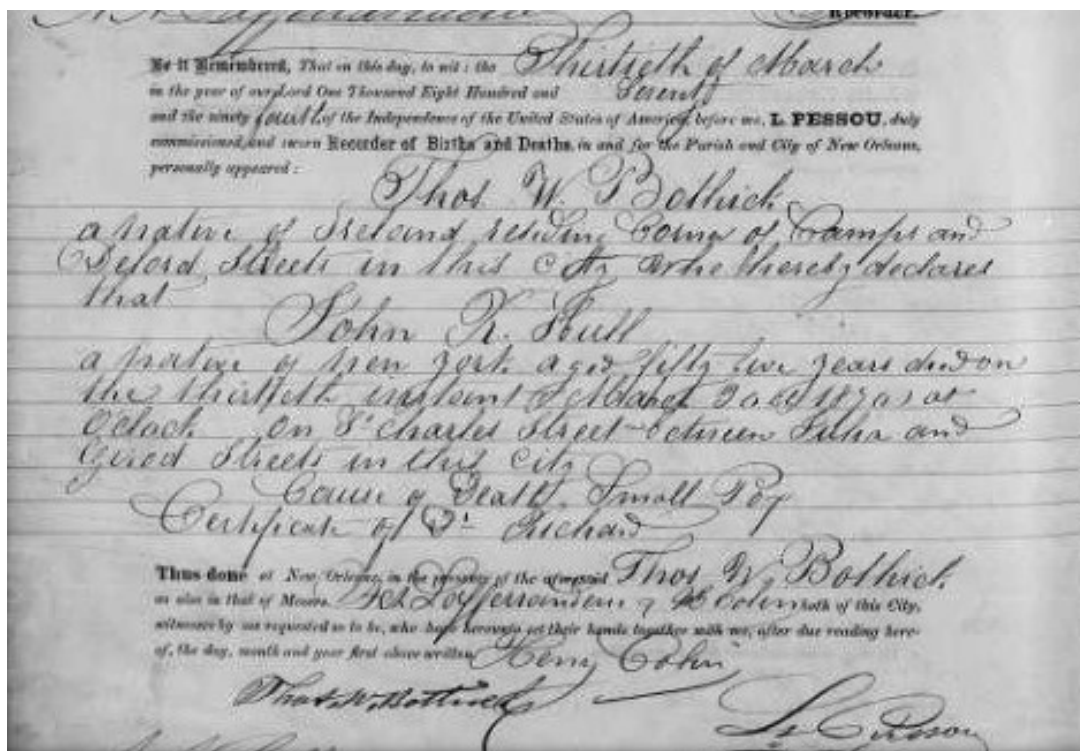 Recorder.
Be it Remembered, That on this day, to wit: the Thirtieth of March
in the year of our Lord One Thousand Eight Hundred and Seventy
and the ninety fourth of the Independence of the United States of America, before me, L. PESSOU, duly
commissioned, and sworn Recorder of Births and Deaths, in and for the Parish and City of New Orleans,
personally appeared:
Thos W. Bothick
a native of Ireland residing Corner of Camps and
Streets in this City who hereby declares
that
John R. Hull
a native of New York aged fifty two years died on
the thirtieth instant March 1870 at
Oclock On St Charles Street between Julia and
Girod Streets in this City
Cause of Death, Small Pox
Certificate of Dr Richard
Thus done at New Orleans, in the presence of the aforesaid Thos W. Bothick
as also in that of Messrs. both of this City,
witnesses by me requested so to be, who have hereunto set their hands together with me, after due reading here-
of, the day, month and year first above written. Henry Colin
Thos. W. Bothick
Pessou